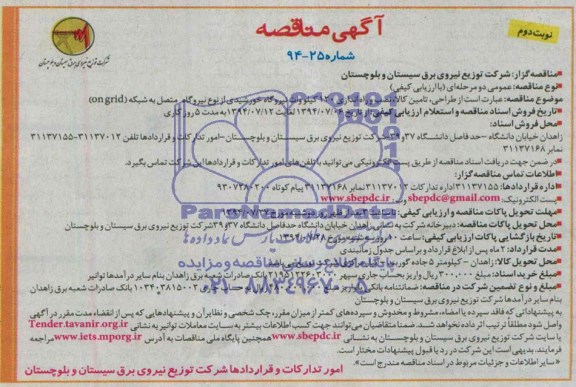 آگهی مناقصه
شماره ۲۵-۹۴
نوبت دوم
شرکت توزیع نیروی برق سیستان و بلوچستان
•مناقصه گزار: شرکت توزیع نیروی برق سیستان و بلوچستان
•نوع مناقصه: عمومی دو مرحله‌ای (با ارزیابی کیفی)
موضوع مناقصه: عبارت است از طراحی، تامین کالا، نصب و راه اندازی کیلو وات نیروگاه خورشیدی از نوع نیروگاه متصل به شبکه (on grid)
•تاریخ فروش اسناد مناقصه و استعلام ارزیابی کیفی: از تاریخ ۱۳۹۴/۰۷/۰۶ لغایت ۱۳۹۴/۰۷/۱۲ به مدت ۵ روز کاری
•محل فروش اسناد:
زاهدان خیابان دانشگاه -حدفاصل دانشگاه ۳۷ و ۳۹-شرکت توزیع نیروی برق سیستان و بلوچستان-امور تدارکات و قراردادها تلفن ۳۱۱۳۷۰۱۲-۳۱۱۳۷۱۵۵
نمابر ۳۱۱۳۷۱۶۸
در ضمن جهت دریافت اسناد مناقصه از طریق پست الکترونیکی می توانید با تلفن‌های امور تدارکات و قراردادها این شرکت تماس بگیرد.
•اطلاعات تماس مناقصه گزار:
•اداره قراردادها: ۳۱۱۳۷۱۵۵ اداره تدارکات ۳۱۱۳۷۰۱۲ نمابر ۳۱۱۳۷۱۶۸ پیام کوتاه
پست الکترونیک: sbepdc@gmail.com www.sbepdc.ir
•مهلت تحویل پاکات مناقصه و ارزیابی کیفی:
•محل تحویل پاکات مناقصه: دبیرخانه شرکت به نشانی زاهدان خیابان دانشگاه حدفاصل دانشگاه ۳۷ و ۳۹ شرکت توزیع نیروی برق سیستان و بلوچستان
•تاریخ بازگشایی پاکات ارزیابی کیفی: ساعت
•مدت قرارداد: ۲ ماه پس از ابلاغ قرارداد و براساس جدول زمانبندی
•محل تحویل کالا: زاهدان - کیلومتر ۵ جاده
•مبلغ خرید اسناد: ۳۰۰,۰۰۰ ریال واریز بحساب جاری سپهر بانک صادرات شعبه برق زاهدان بنام سایر درآمدها توانیر
•مبلغ و نوع تضمین شرکت در مناقصه: ضمانتنامه بانکی بانک صادرات شعبه برق زاهدان
بنام سایر درآمدها شرکت توزیع نیروی برق سیستان و بلوچستان
به پیشنهاداتی که فاقد سپرده یا امضاء، مشروط و مخدوش و سپرده‌های کمتر از میزان مقرر، چک شخصی و نظایر آن و پیشنهادهایی که پس از انقضاء مدت مقرر در آگهی
واصل شود مطلقاً ترتیب اثر داده نخواهد شد. ضمناً متقاضیان می‌توانند جهت کسب اطلاعات بیشتر به سایت معاملات توانیر به نشانی Tender.tavanir.org.ir
یا سایت شرکت توزیع نیروی برق سیستان و بلوچستان به نشانی www.sbepdc.ir همچنین پایگاه ملی مناقصات به آدرس www.iets.mporg.ir مراجعه
فرمایند. بدیهی است این شرکت در رد یا قبول پیشنهادات مختار است.
«سایر اطلاعات و جزئیات مربوط در اسناد مناقصه مندرج است»
امور تدارکات و قراردادها شرکت توزیع نیروی برق سیستان و بلوچستان
ParsNamadData
پایگاه اطلاع رسانی مناقصه و مزایده
۰۲۱-۸۸۳۴۹۶۷۰-۵